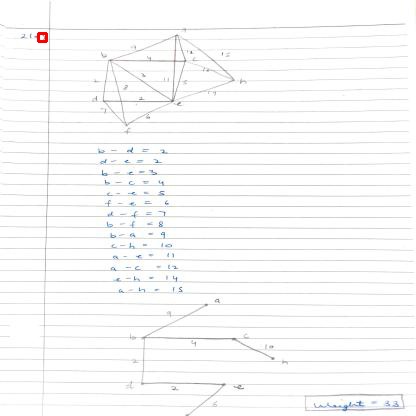 21.
a
9
15
b
4
12
c
12
2
3
11
5
h
8
d
2
e
7
6
f
b - d = 2
d - e = 2
b - e = 3
b - c = 4
c - e = 5
f - e = 6
d - f = 7
b - f = 8
b - a = 9
c - h = 10
a - e = 11
a - c = 12
e - h = 14
a - h = 15
a
9
b
c
4
10
h
2
d
2
e
6
Weight = 33